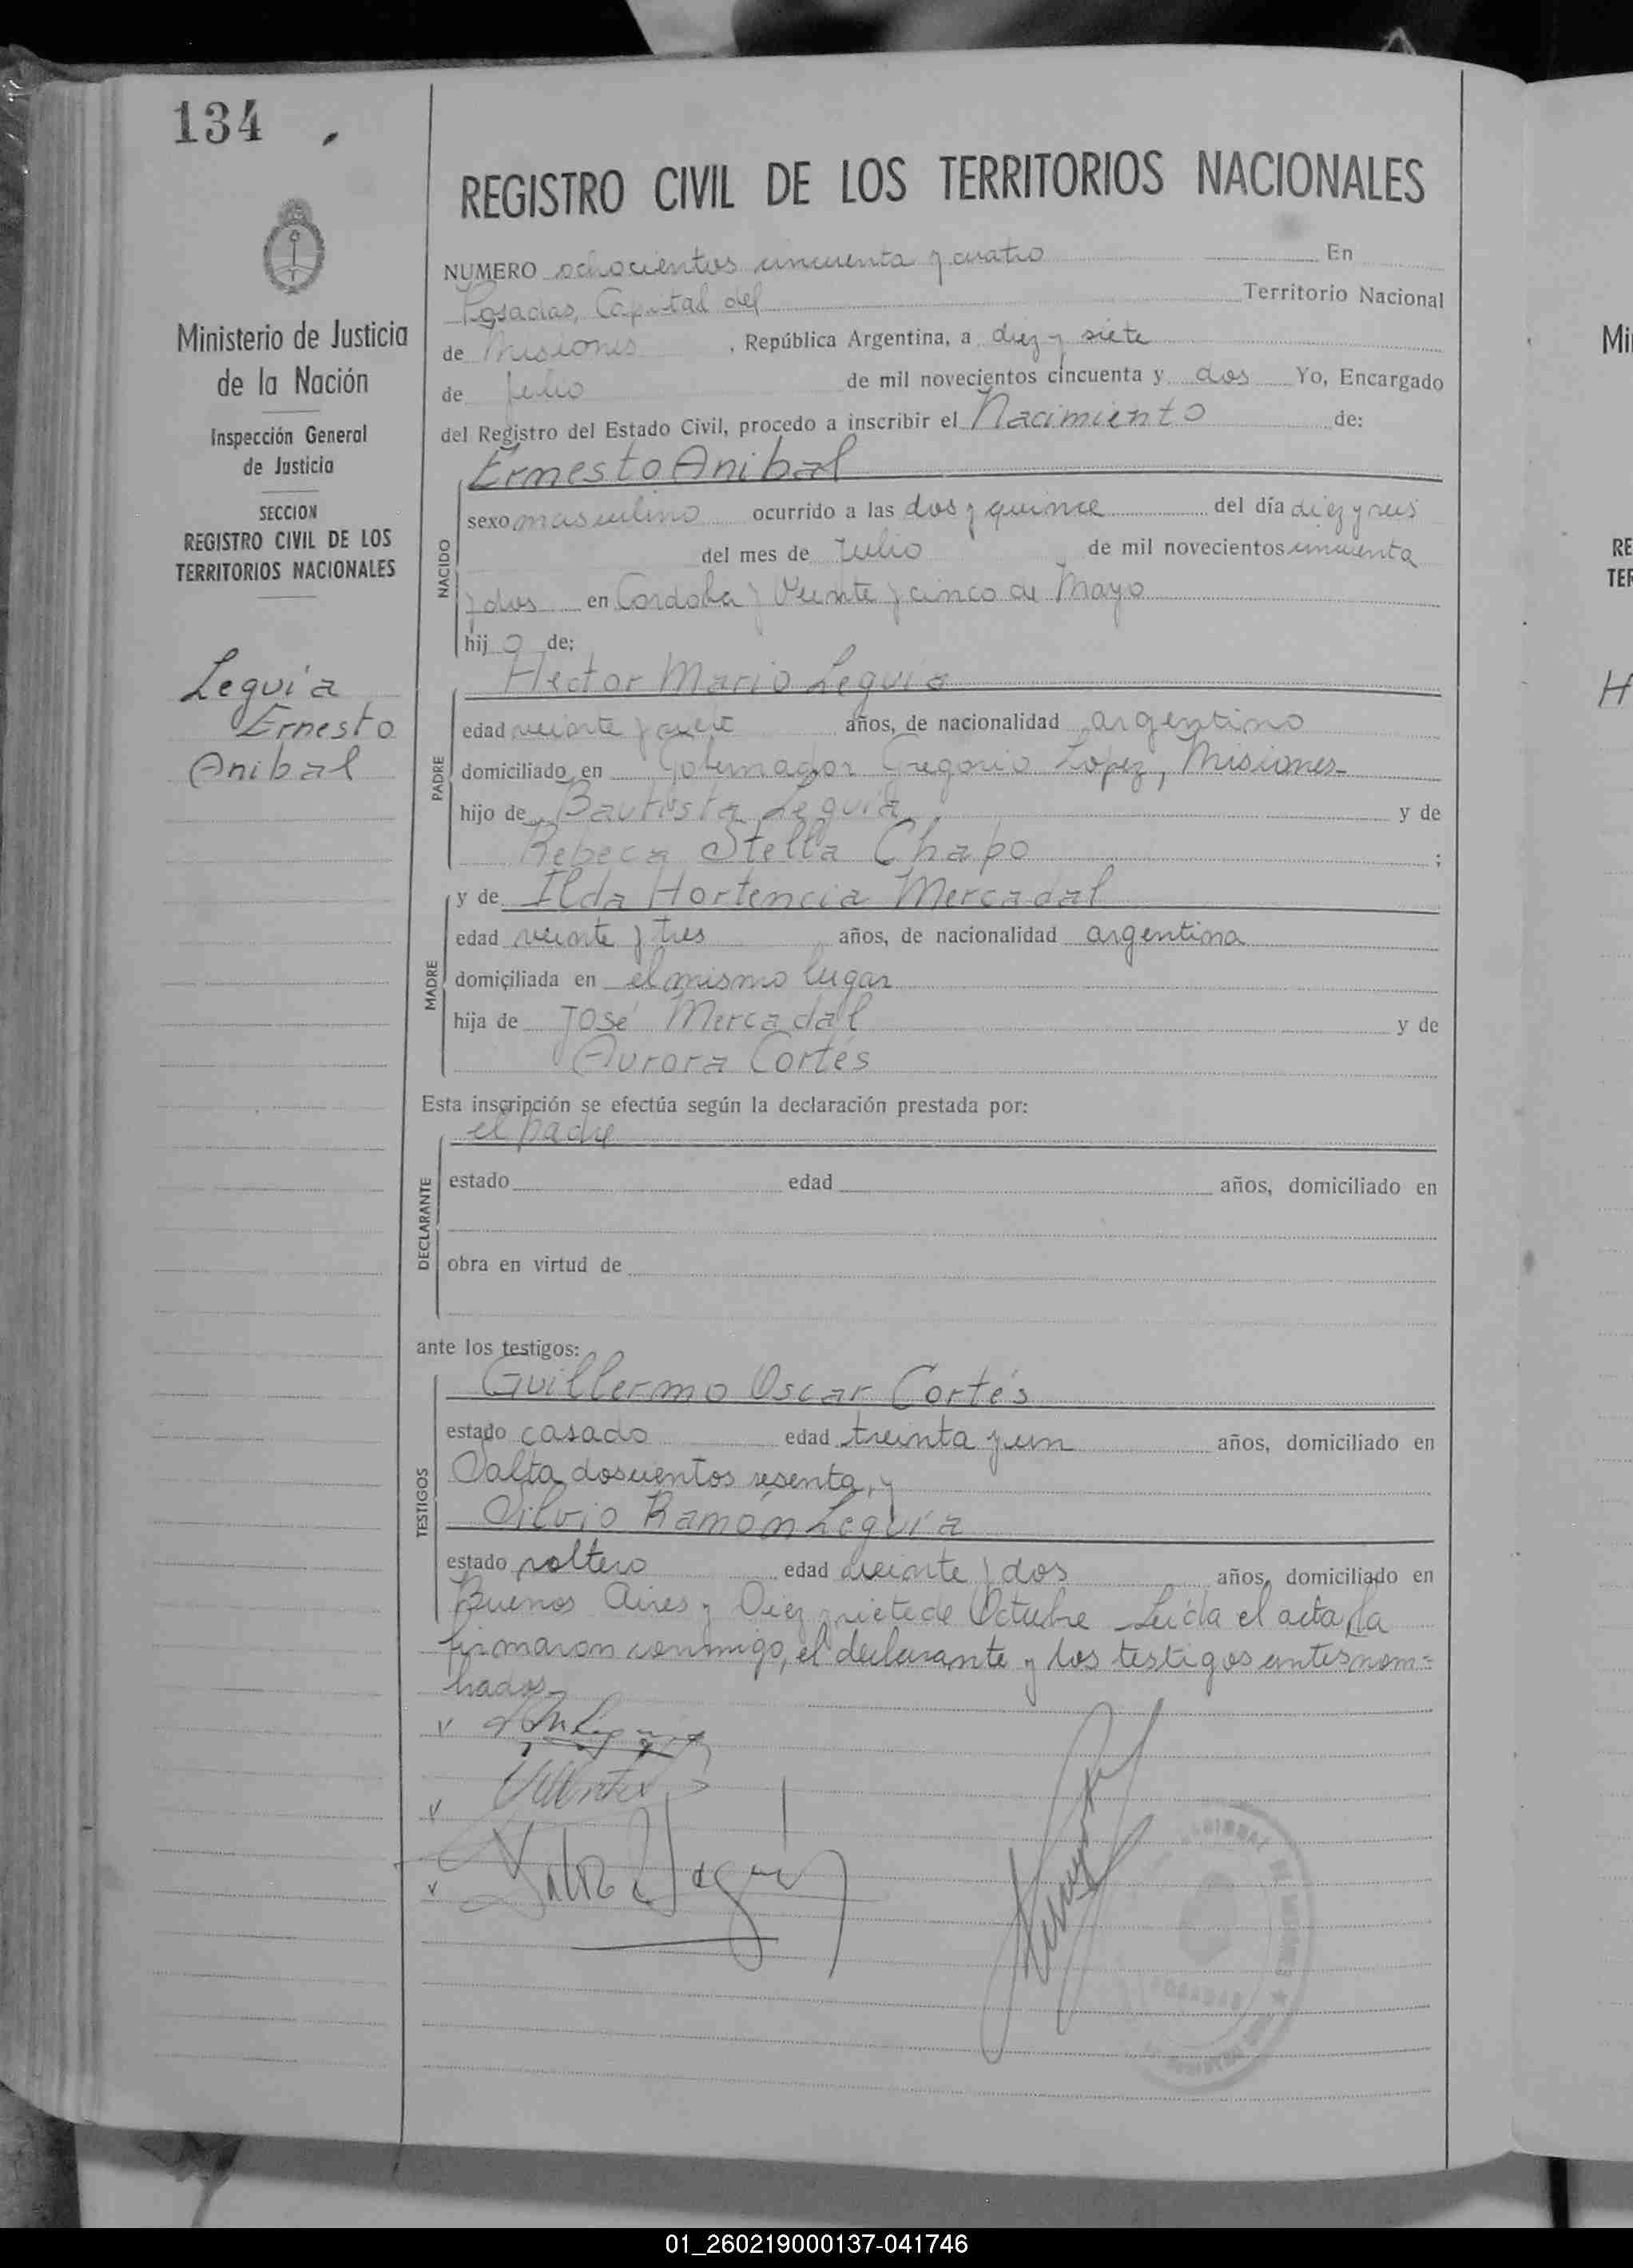 134
REGISTRO CIVIL DE LOS TERRITORIOS NACIONALES
Ministerio de Justicia
de la Nación
Inspección General
de Justicia
SECCION
REGISTRO CIVIL DE LOS
TERRITORIOS NACIONALES
Leguía
Ernesto
Anibal
NUMERO ochocientos cincuenta y cuatro En
Posadas, Capital del Territorio Nacional
de Misiones , República Argentina, a diez y siete
de Julio de mil novecientos cincuenta y dos Yo, Encargado
del Registro del Estado Civil, procedo a inscribir el Nacimiento de:
NACIDO
Ernesto Anibal
sexo masculino ocurrido a las dos y quince del día diez y seis
del mes de Julio de mil novecientos cincuenta
y dos en Cordoba y Veinte y cinco de Mayo
hijo de:
PADRE
Hector Mario Leguía
edad veinte y años, de nacionalidad argentino
domiciliado en Gobernador Gregorio López, Misiones-
hijo de Bautista Leguía y de
Rebeca Stella Chapo ;
MADRE
y de Ilda Hortencia Mercadal
edad veinte y tres años, de nacionalidad argentina
domiciliada en el mismo lugar
hija de José Mercadal y de
Aurora Cortés
Esta inscripción se efectúa según la declaración prestada por:
DECLARANTE
el padre
estado edad años, domiciliado en
obra en virtud de
ante los testigos:
TESTIGOS
Guillermo Oscar Cortés
estado casado edad treinta y un años, domiciliado en
Salta doscientos sesenta, y
Silvio Ramón Leguía
estado soltero edad veinte y dos años, domiciliado en
Buenos Aires y Diez y siete de Octubre Leída el acta, la
firmaron conmigo, el declarante y los testigos antes nom=
brados-
POSADAS
Mi
RE
TER
H
01_260219000137-041746